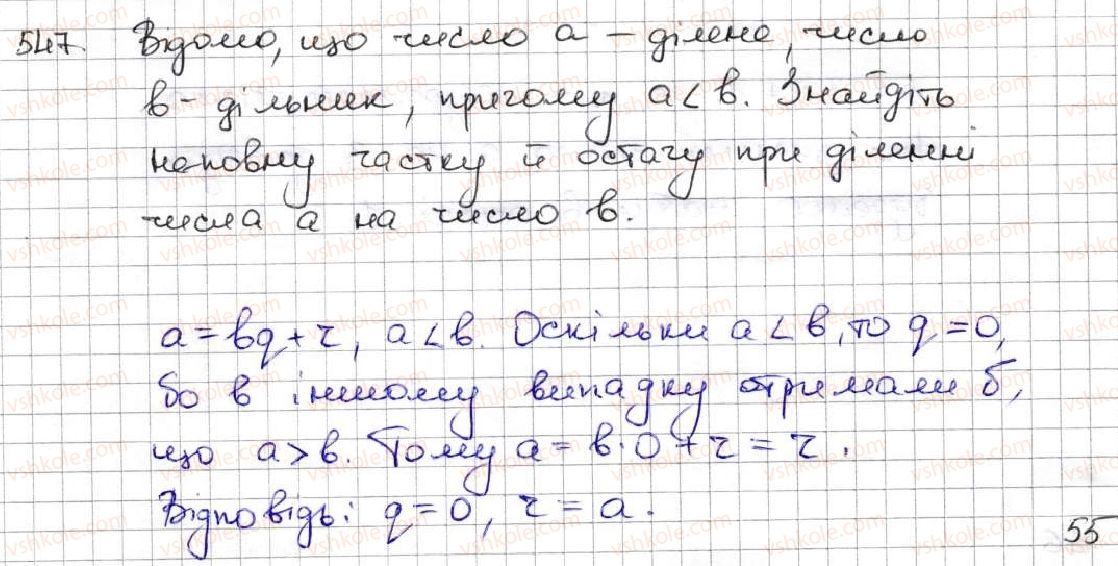 547. Відомо, що число a – ділене, число
b – дільник, причому a < b. Знайдіть
неповну частку й остачу при діленні
числа a на число b.
a = bq + r, a < b. Оскільки a < b, то q = 0,
бо в іншому випадку отримали б,
що a > b. Тому a = b · 0 + r = r.
Відповідь: q = 0, r = a.
55